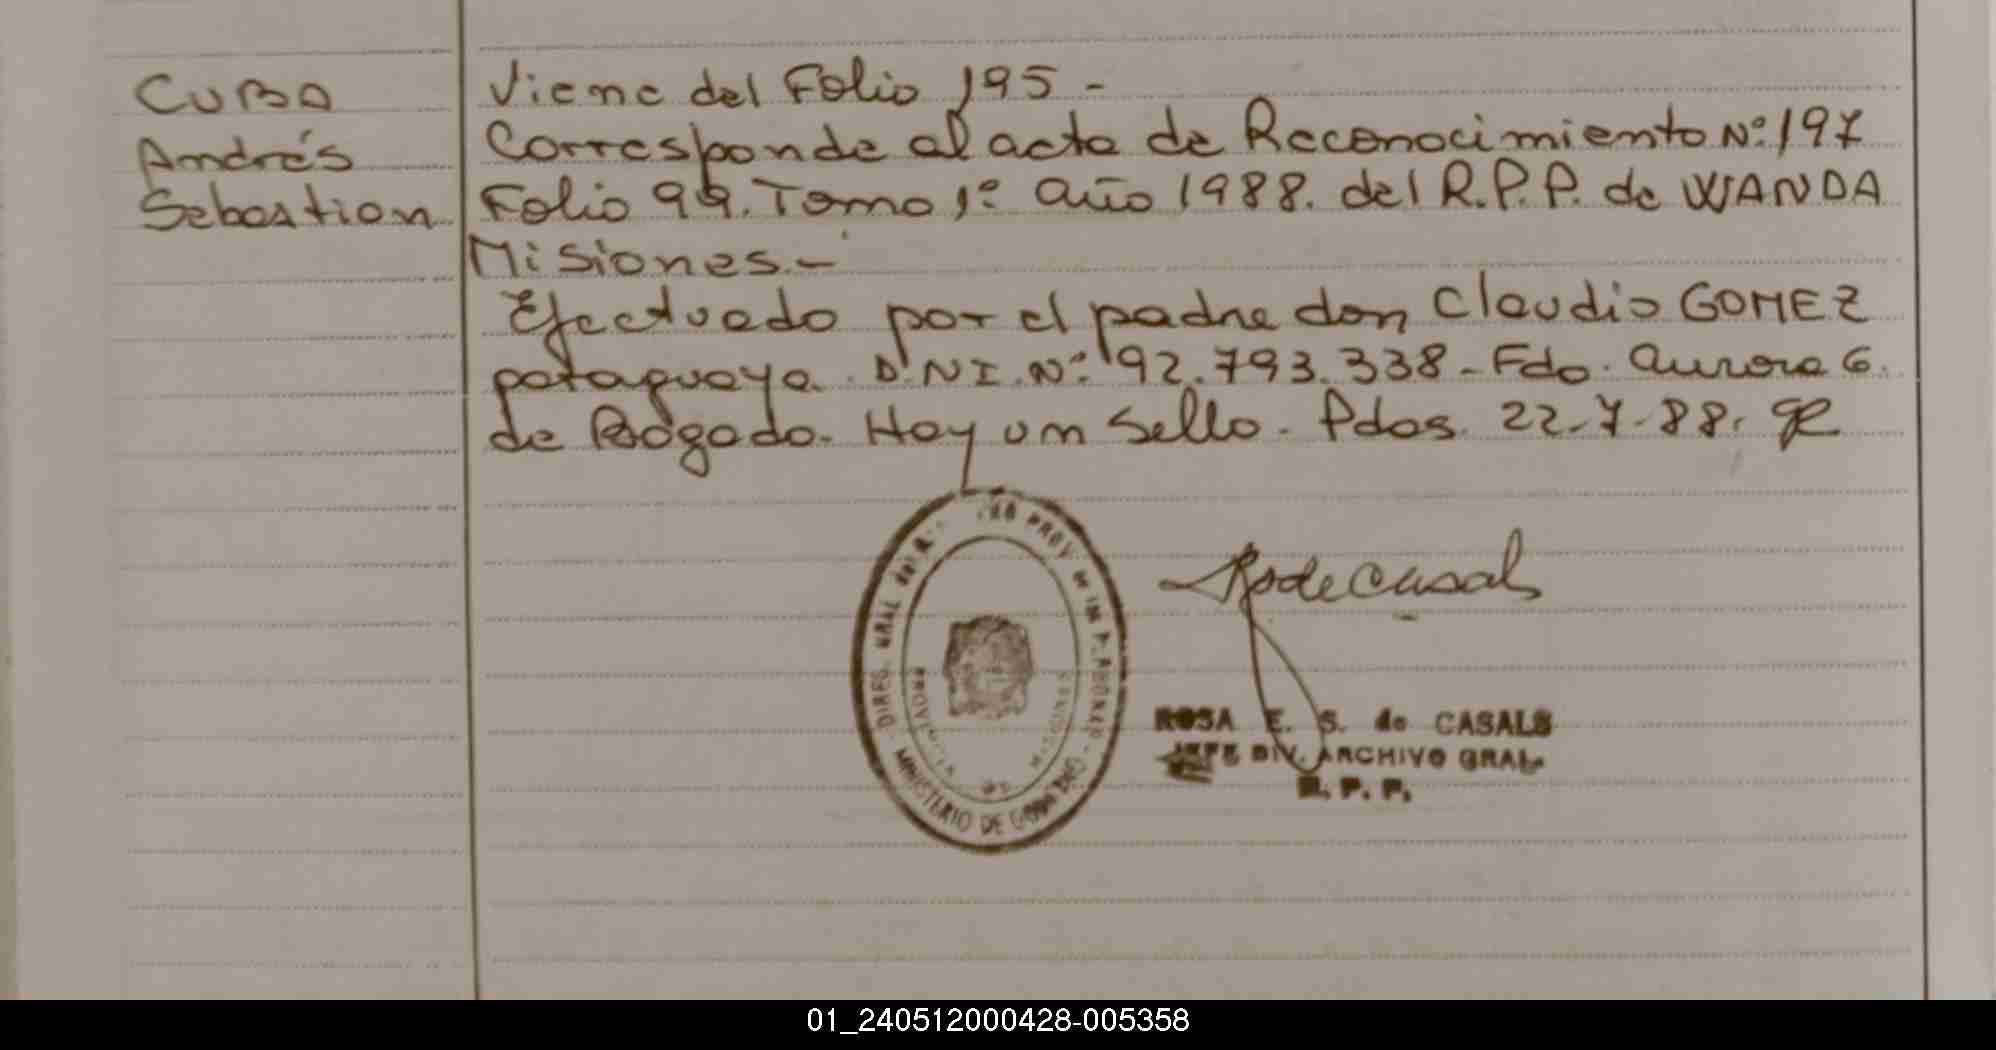 CUBA
Andrés
Sebastian
Viene del Folio 195 -
Corresponde al acta de Reconocimiento Nº: 197
Folio 99. Tomo 1º año 1988. del R.P.P. de WANDA
Misiones.-
Efectuado por el padre don Claudio GOMEZ
paraguaya. D.N.I. Nº: 92.793.338 - Fdo. Aurora G.
de Bogado. Hay un sello. Pdas. 22-7-88.
DIREC. GRAL del PROV. DE LAS PERSONAS - MINISTERIO DE GOBIERNO
PROVINCIA DE MISIONES
Rosa de Casals
ROSA E. S. de CASALS
JEFE DIV. ARCHIVO GRAL.
R. P. P.
01_240512000428-005358